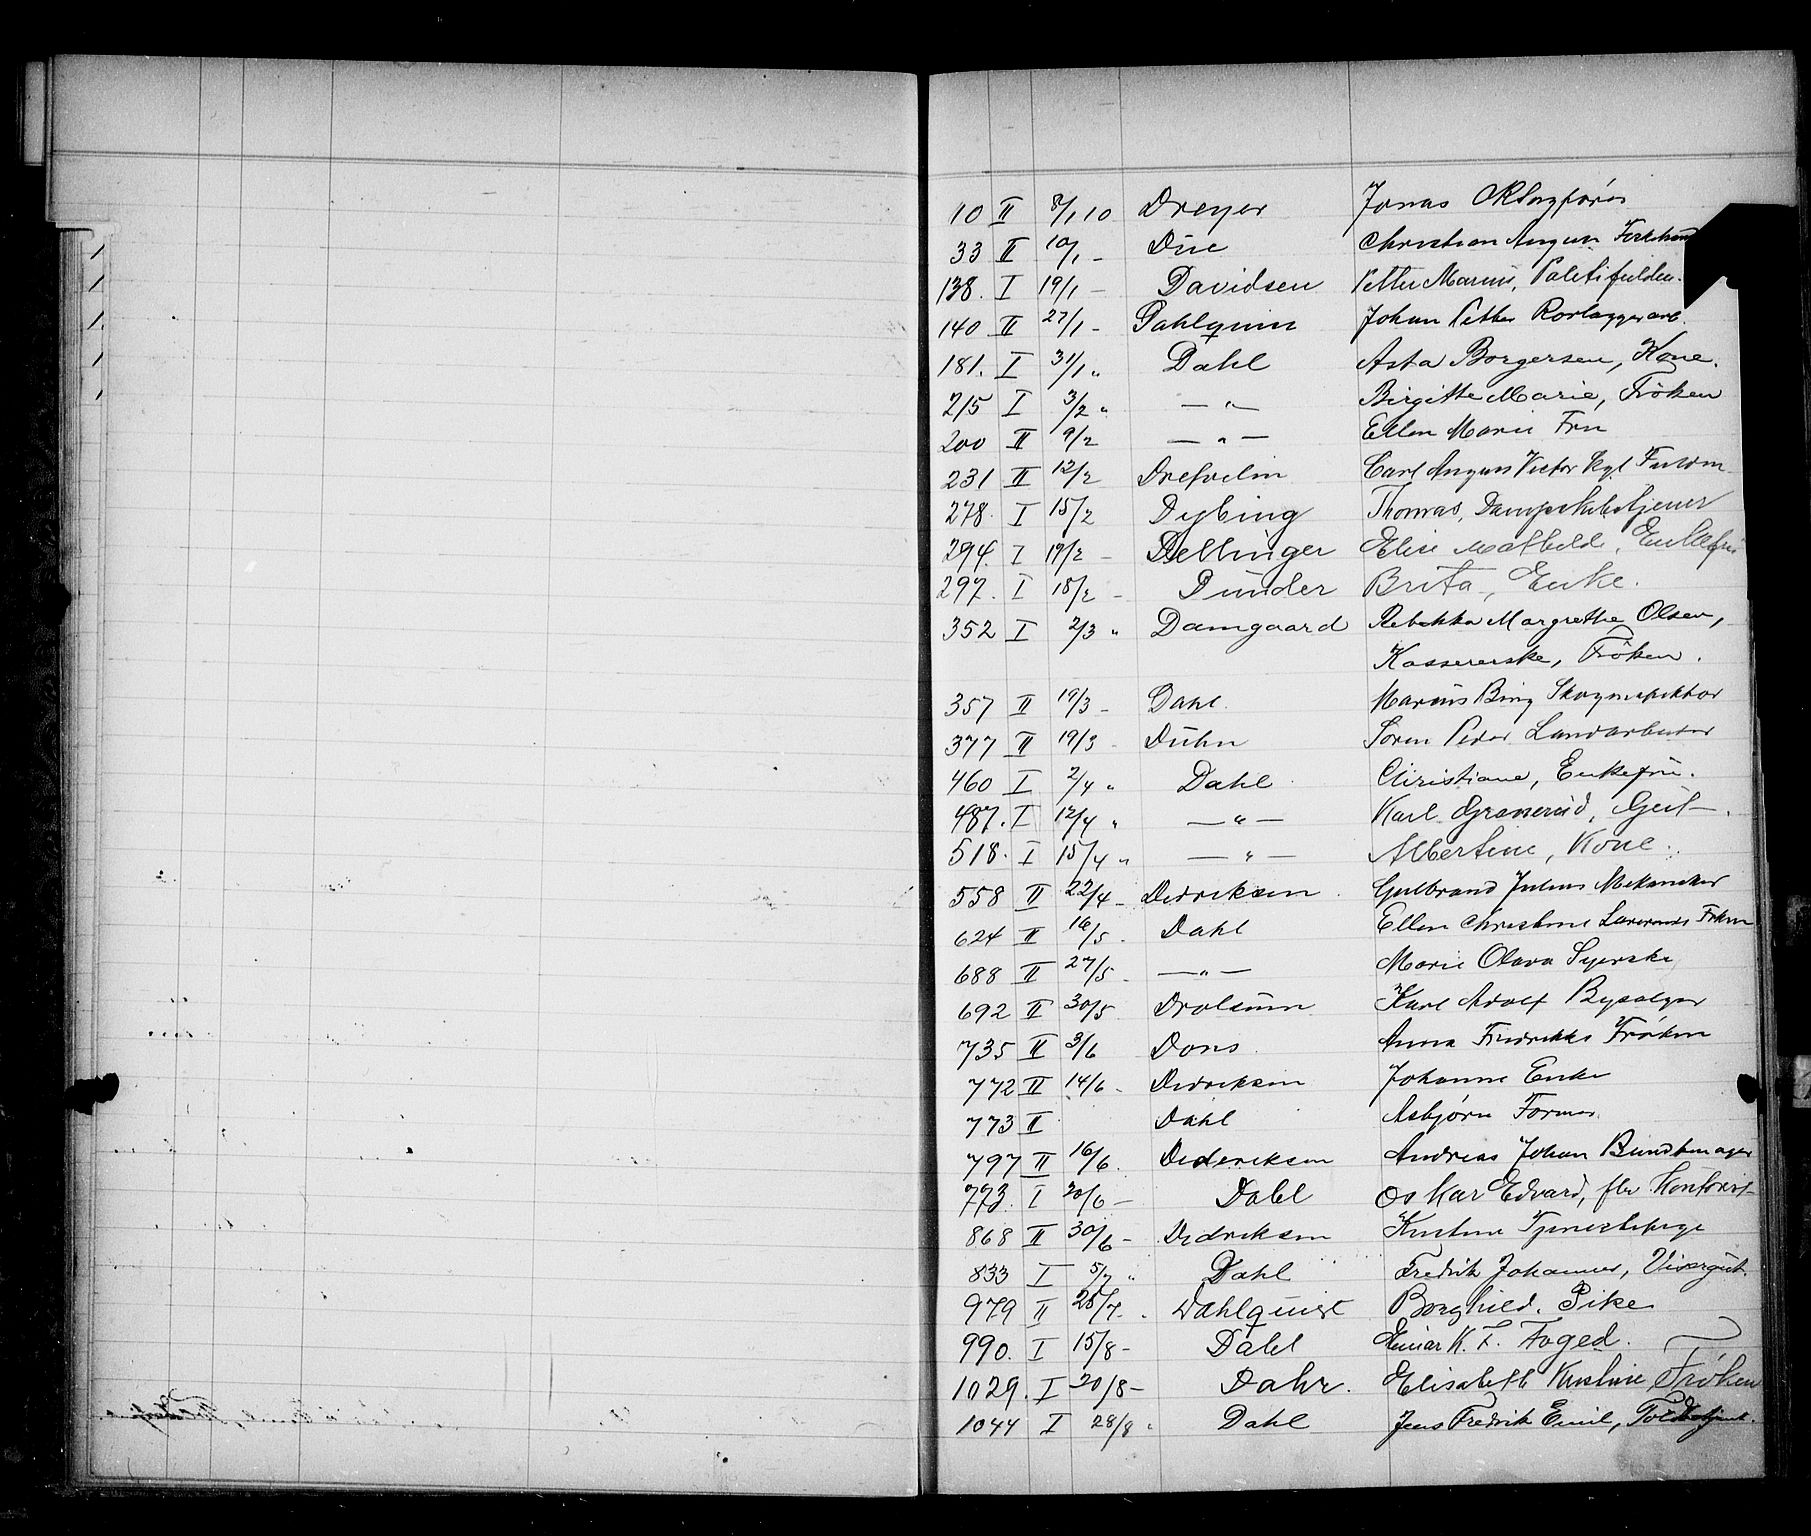 10 II 8/1 10 Dreyer Jonas
33 II 10/1 - Due Christian August
138. I 19/1 - Davidsen Petter Marius, Politifuldm.
140 II 27/1 - Dahlquim Johan Petter Rørlæggerarb.
181. I 31/1 „ Dahl Asta Borgersen, Kone.
215 I 3/2 „ — „ — Birgitte Marie, Frøken
200 II 9/2 — „ — Ellen Marie Fru
231 II 12/2 Drefvelin Carl August Victor Kgl Fuldm
278. I 15/2 Dybing Thomas, Dampskibstjener
294. I 19/2 - Dellinger Elise Mathilde, Enkefru
297. I 18/2 - Dunder Brita, Enke.
352 I 2/3 „ Damgaard Rebekka Margrethe Olsen,
Kassererske, Frøken.
357 II 19/3 - Dahl. Marius Bing Skoginspektør
377 II 19/3 - Duhn Søren Peder Landarbeider
460 I 2/4 „ Dahl Christiane, Enkefru.
487. I 12/4 „ — „ — Karl Granerud, Gut.
518. I 15/4 „ — „ — Albertine, Kone.
558 II 22/4 - Dedriksen Gulbrand Julius Mekaniker
624 II 16/5 - Dahl Ellen Christine Lærerinde Frøken
688 II 27/5 - — „ — Marie Olava Syerske
692 II 30/5 Drolsum Karl Adolf Bysælger
735 II 3/6 Dons Anna Fredrikke Frøken
772 II 14/6 - Dedriksen Johanne Enke
773 II Dahl Asbjørn Former
797 II 16/6 Dideriksen Andreas Johan Buntmager
773. I 20/6 - Dahl Oskar Edvard, fhv. Kontorist
868 II 30/6 - Didriksen Kristine Tjenestepige
833 I 5/7 „ Dahl Fredrik Johannes, Visergut.
979 II 25/7. Dahlquist Borghild. Pike
990. I 15/8 - Dahl Einar K. F. Foged.
1029. I 20/8 - Dahr. Elisabeth Kristine Frøken
1044 I 28/8 „ Dahl Jens Fredrik Emil, Toldbetjent.